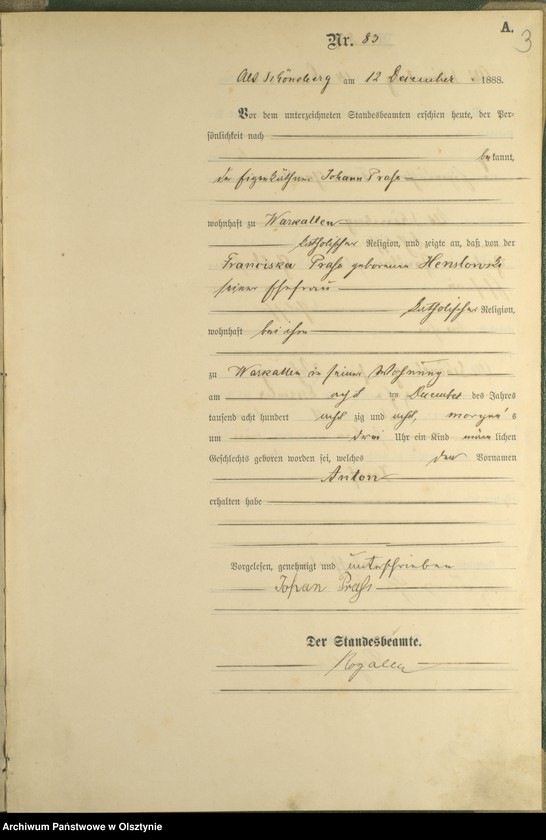 A.
3
Nr. 83
Alt Schöneberg am 12 December 1888.
Vor dem unterzeichneten Standesbeamten erschien heute, der Per-
sönlichkeit nach
bekannt,
der Eigenkäthner Johann Prass
wohnhaft zu Warkallen
katholischer Religion, und zeigte an, daß von der
Franciska Prass geborenen
seiner Ehefrau
katholischer Religion,
wohnhaft bei ihm
zu Warkallen in seiner Wohnung
am acht ten December des Jahres
tausend acht hundert acht zig und acht, morgens
um drei Uhr ein Kind männlichen
Geschlechts geboren worden sei, welches den Vornamen
Anton
erhalten habe
Vorgelesen, genehmigt und unterschrieben
Johan Prass
Der Standesbeamte.
Rogalla
Archiwum Państwowe w Olsztynie